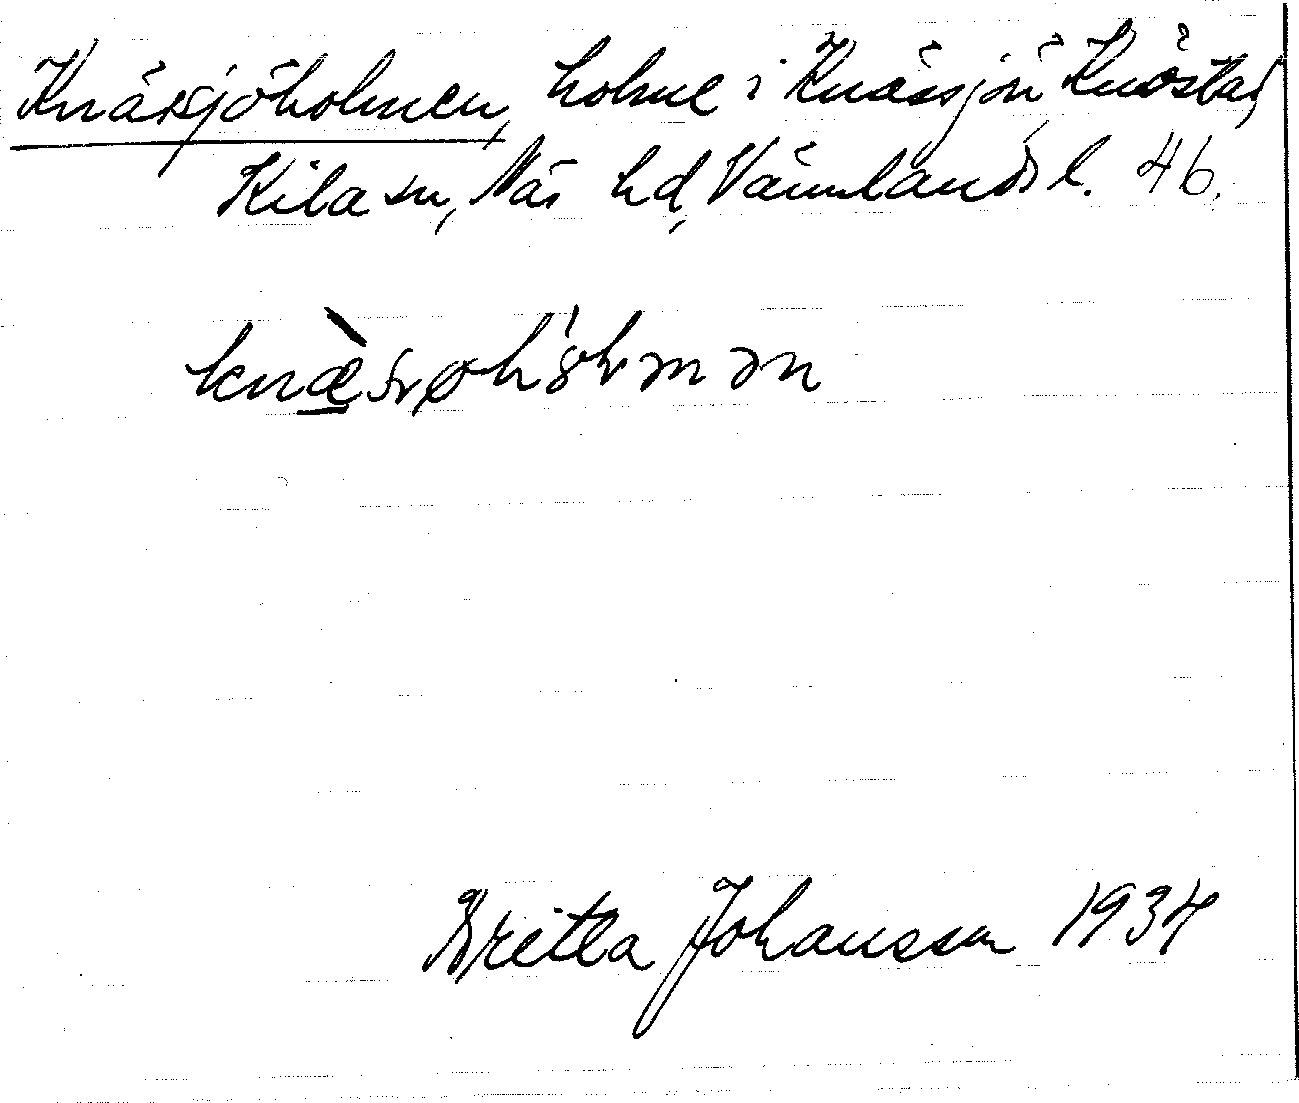 Knässjöholmen, holme i Knässjön Knöstad,
Kila sn, Näs hd, Värmlands l. 46.
Britta Johansson 1934